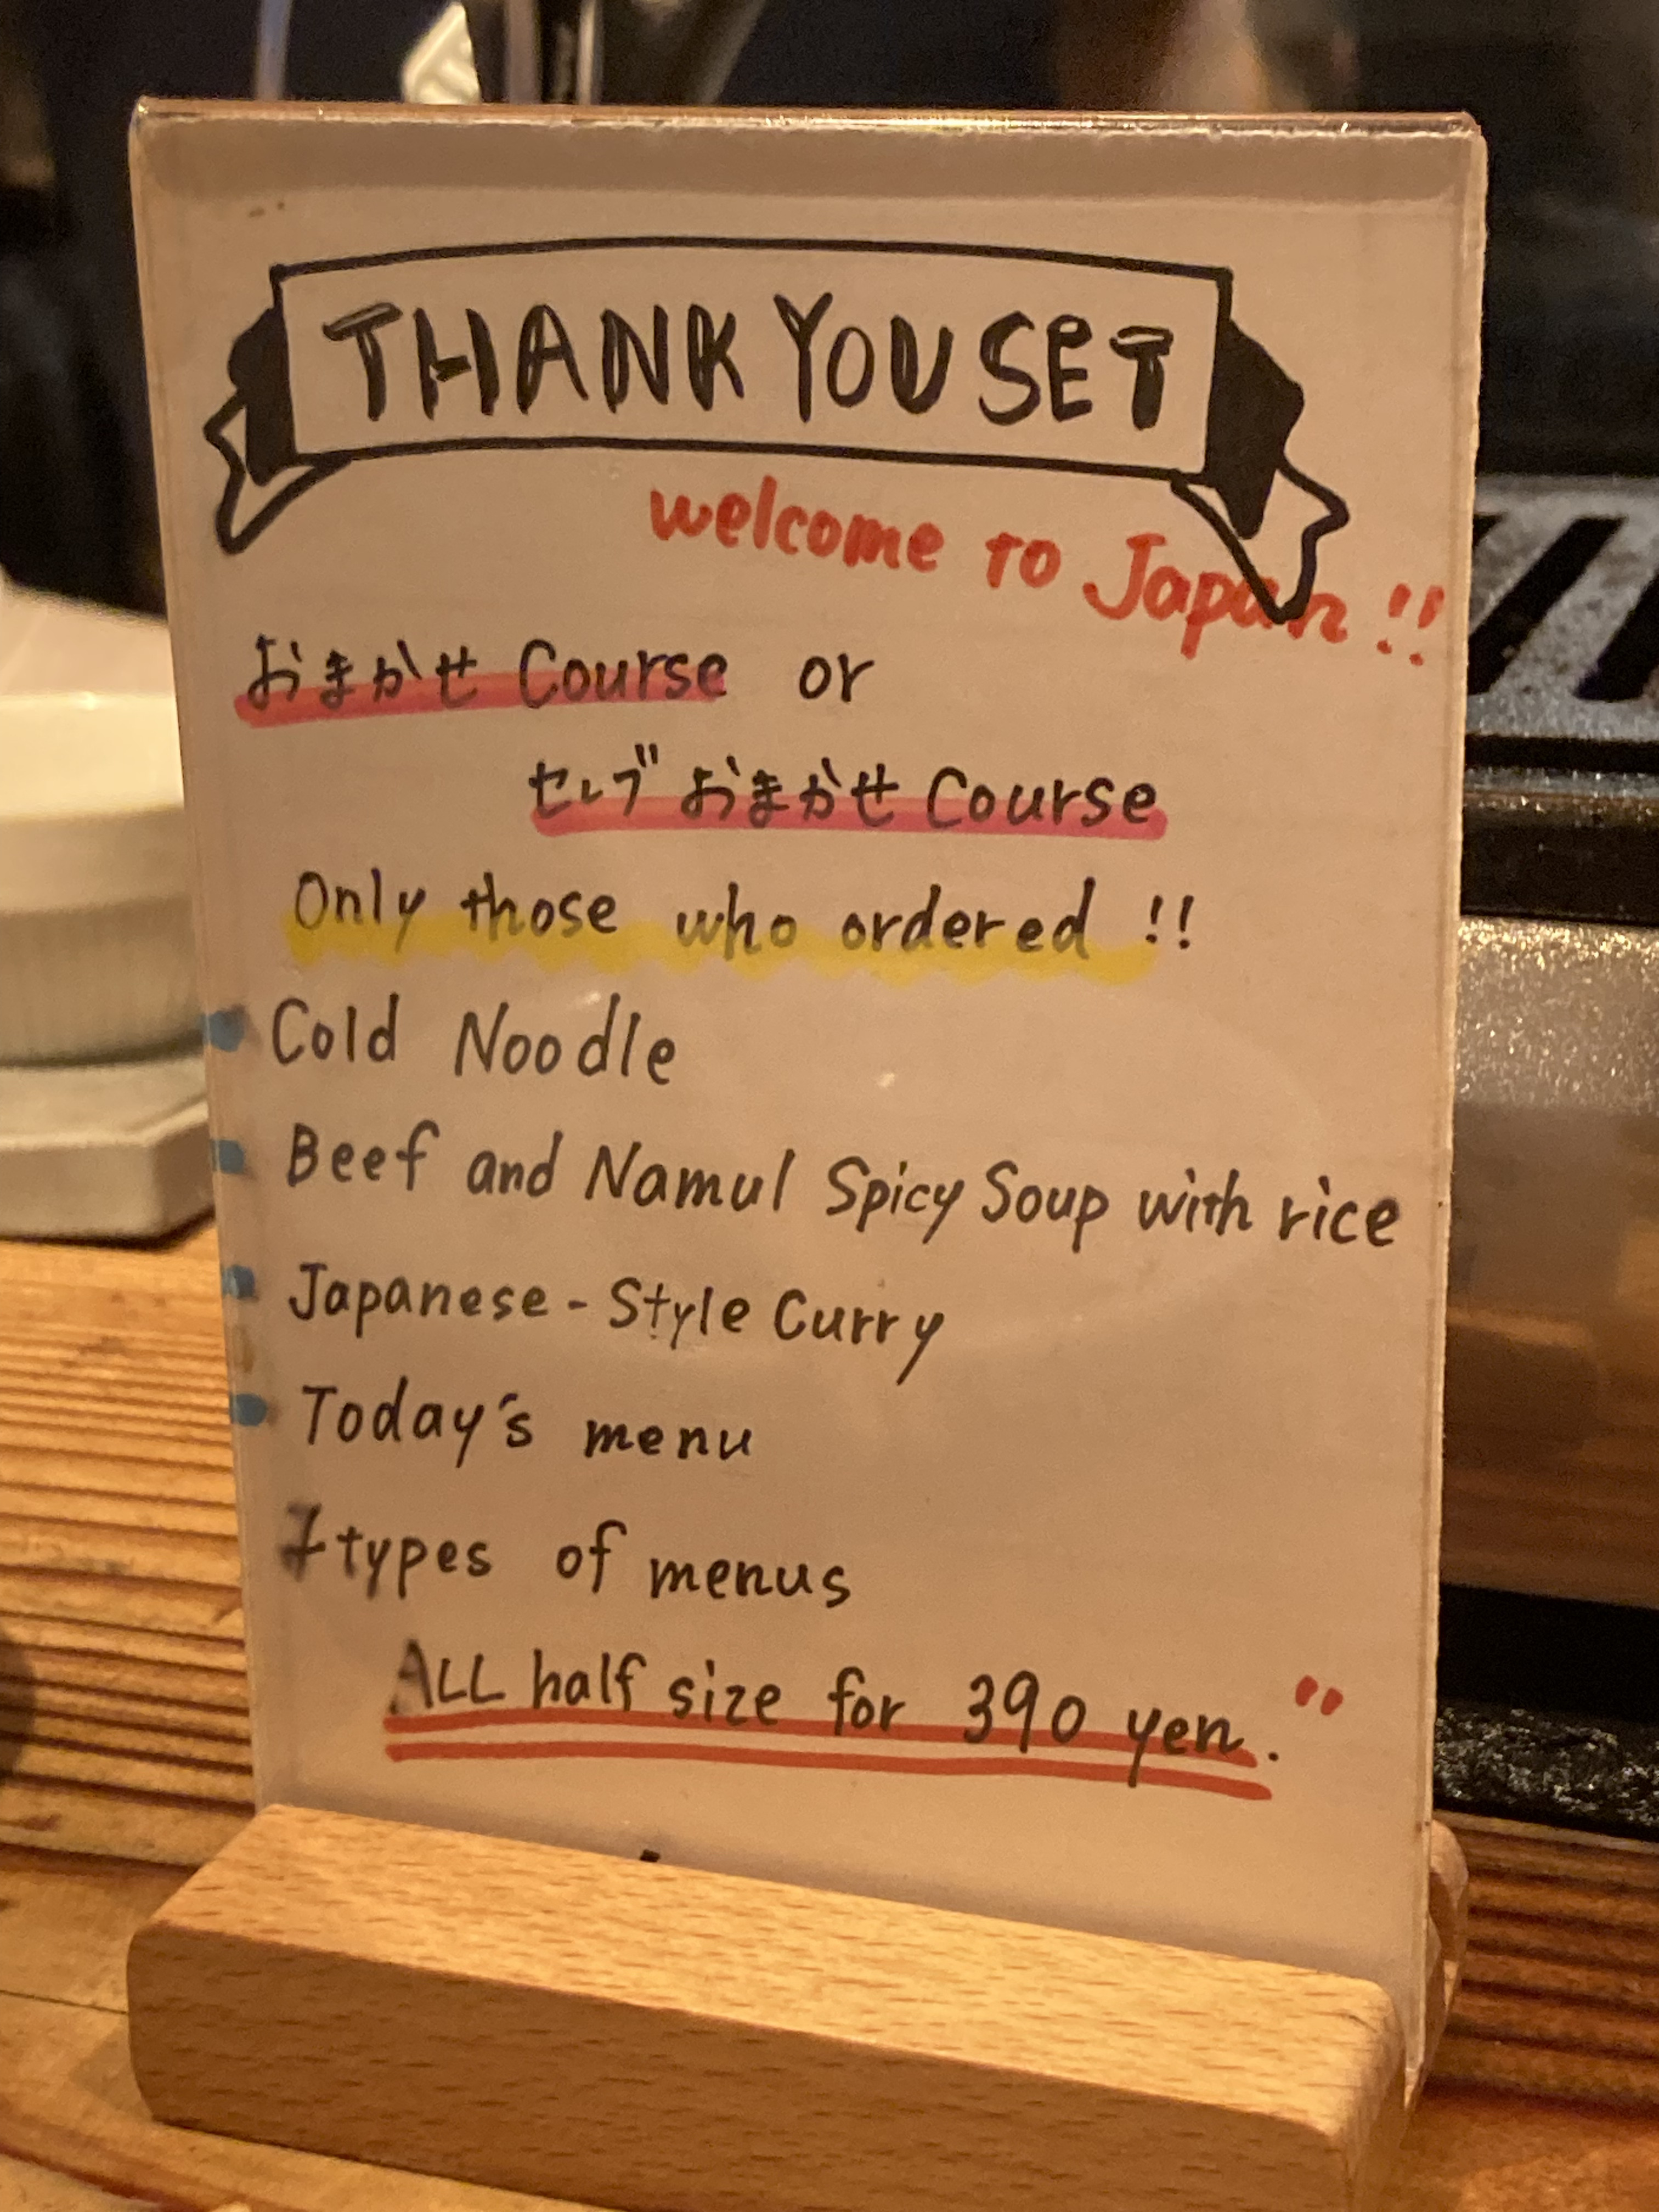 THANK YOU SET
welcome to Japan!!
おまかせ Course or
セレブ おまかせ Course
Only those who ordered !!
Cold Noodle
Beef and Namul Spicy Soup with rice
Japanese-Style Curry
Today's menu
7 types of menus
ALL half size for 390 yen.